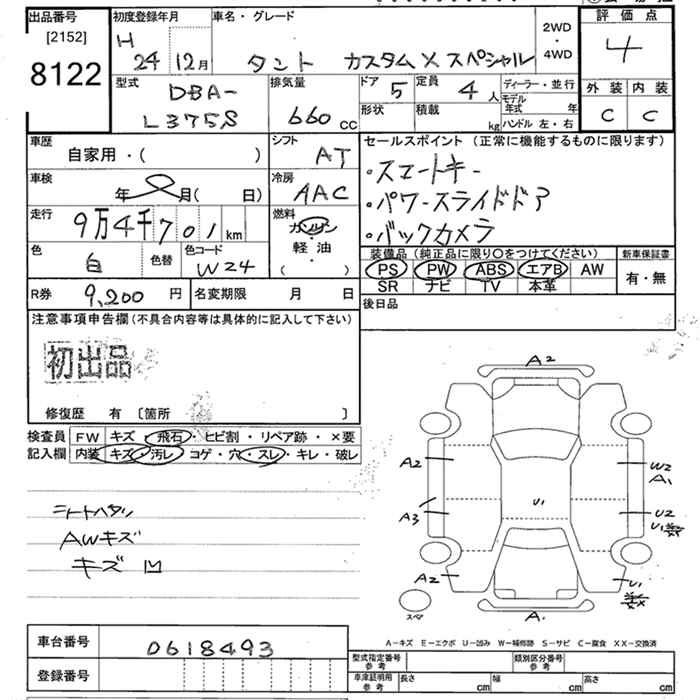 出品番号
[2152]
8122
初度登録年月
H
24 12月
車名・グレード
タント カスタムXスペシャル
2WD
・
4WD
評価点
4
外装 内装
C C
型式
DBA-
L375S
排気量
660 CC
ドア 5
定員 4 人
ディーラー・並行
モデル年式 年
形状
積載 kg
ハンドル 左・右
車歴
自家用・( )
シフト
AT
車検
年 月( 日)
冷房
AAC
走行
9万4千701 km
燃料
ガソリン
・
軽・油
( )
色
白
色替
色コード
W24
R券 9,200 円
名変期限 月 日
セールスポイント (正常に機能するものに限ります)
・スマートキー
・パワースライドドア
・バックカメラ
装備品(純正品に限り○をつけてください)
PS PW ABS エアB AW
SR ナビ TV 本革
新車保証書
有・無
後日品
注意事項申告欄(不具合内容等は具体的に記入して下さい)
初出品
修復歴 有 〔箇所 〕
検査員
記入欄
FW キズ・飛石・ヒビ割・リペア跡・×要
内装 キズ・汚レ・コゲ・穴・スレ・キレ・破レ
シートハタリ
AWキズ
キズ 凹
A2
A2
W2
A1
U1
A3
U2
U1
A2
U1
A1
スペア
A-キズ E-エクボ U-凹み W-補修跡 S-サビ C-腐食 XX-交換済
車台番号 0618493
登録番号
型式指定番号
参考
類別区分番号
参考
車庫証明用
参考
長さ cm 幅 cm 高さ cm